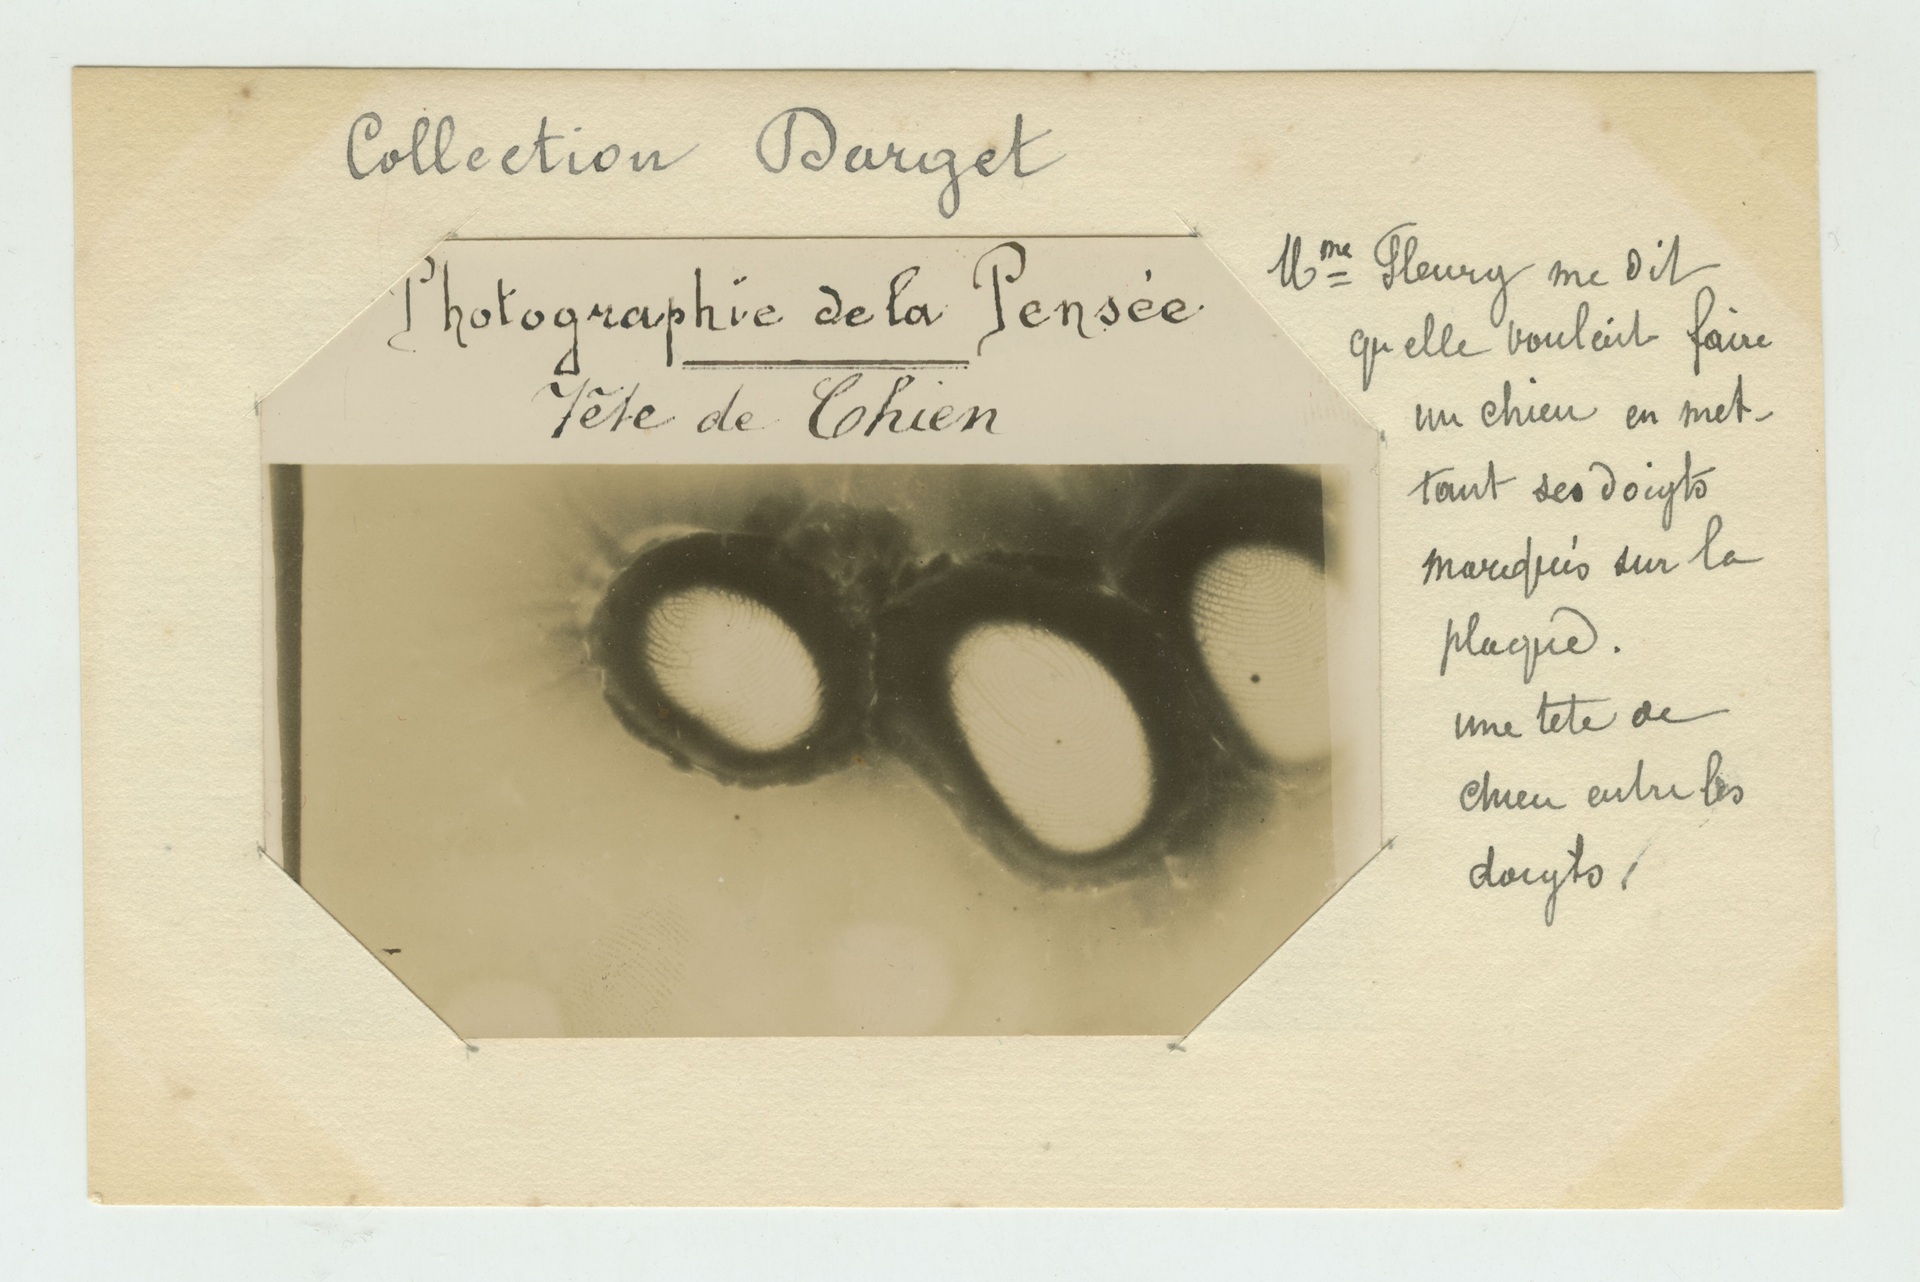 Collection Darget
Photographie de la Pensée
Tête de Chien
Mme Fleury me dit
qu elle voulait faire
un chien en met-
tant ses doigts
marqués sur la
plaque.
une tete de
chien entre les
doigts.